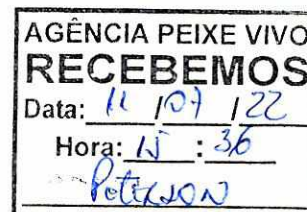 AGÊNCIA PEIXE VIVO
RECEBEMOS
Data: 11 / 07 / 22
Hora: 15 : 36